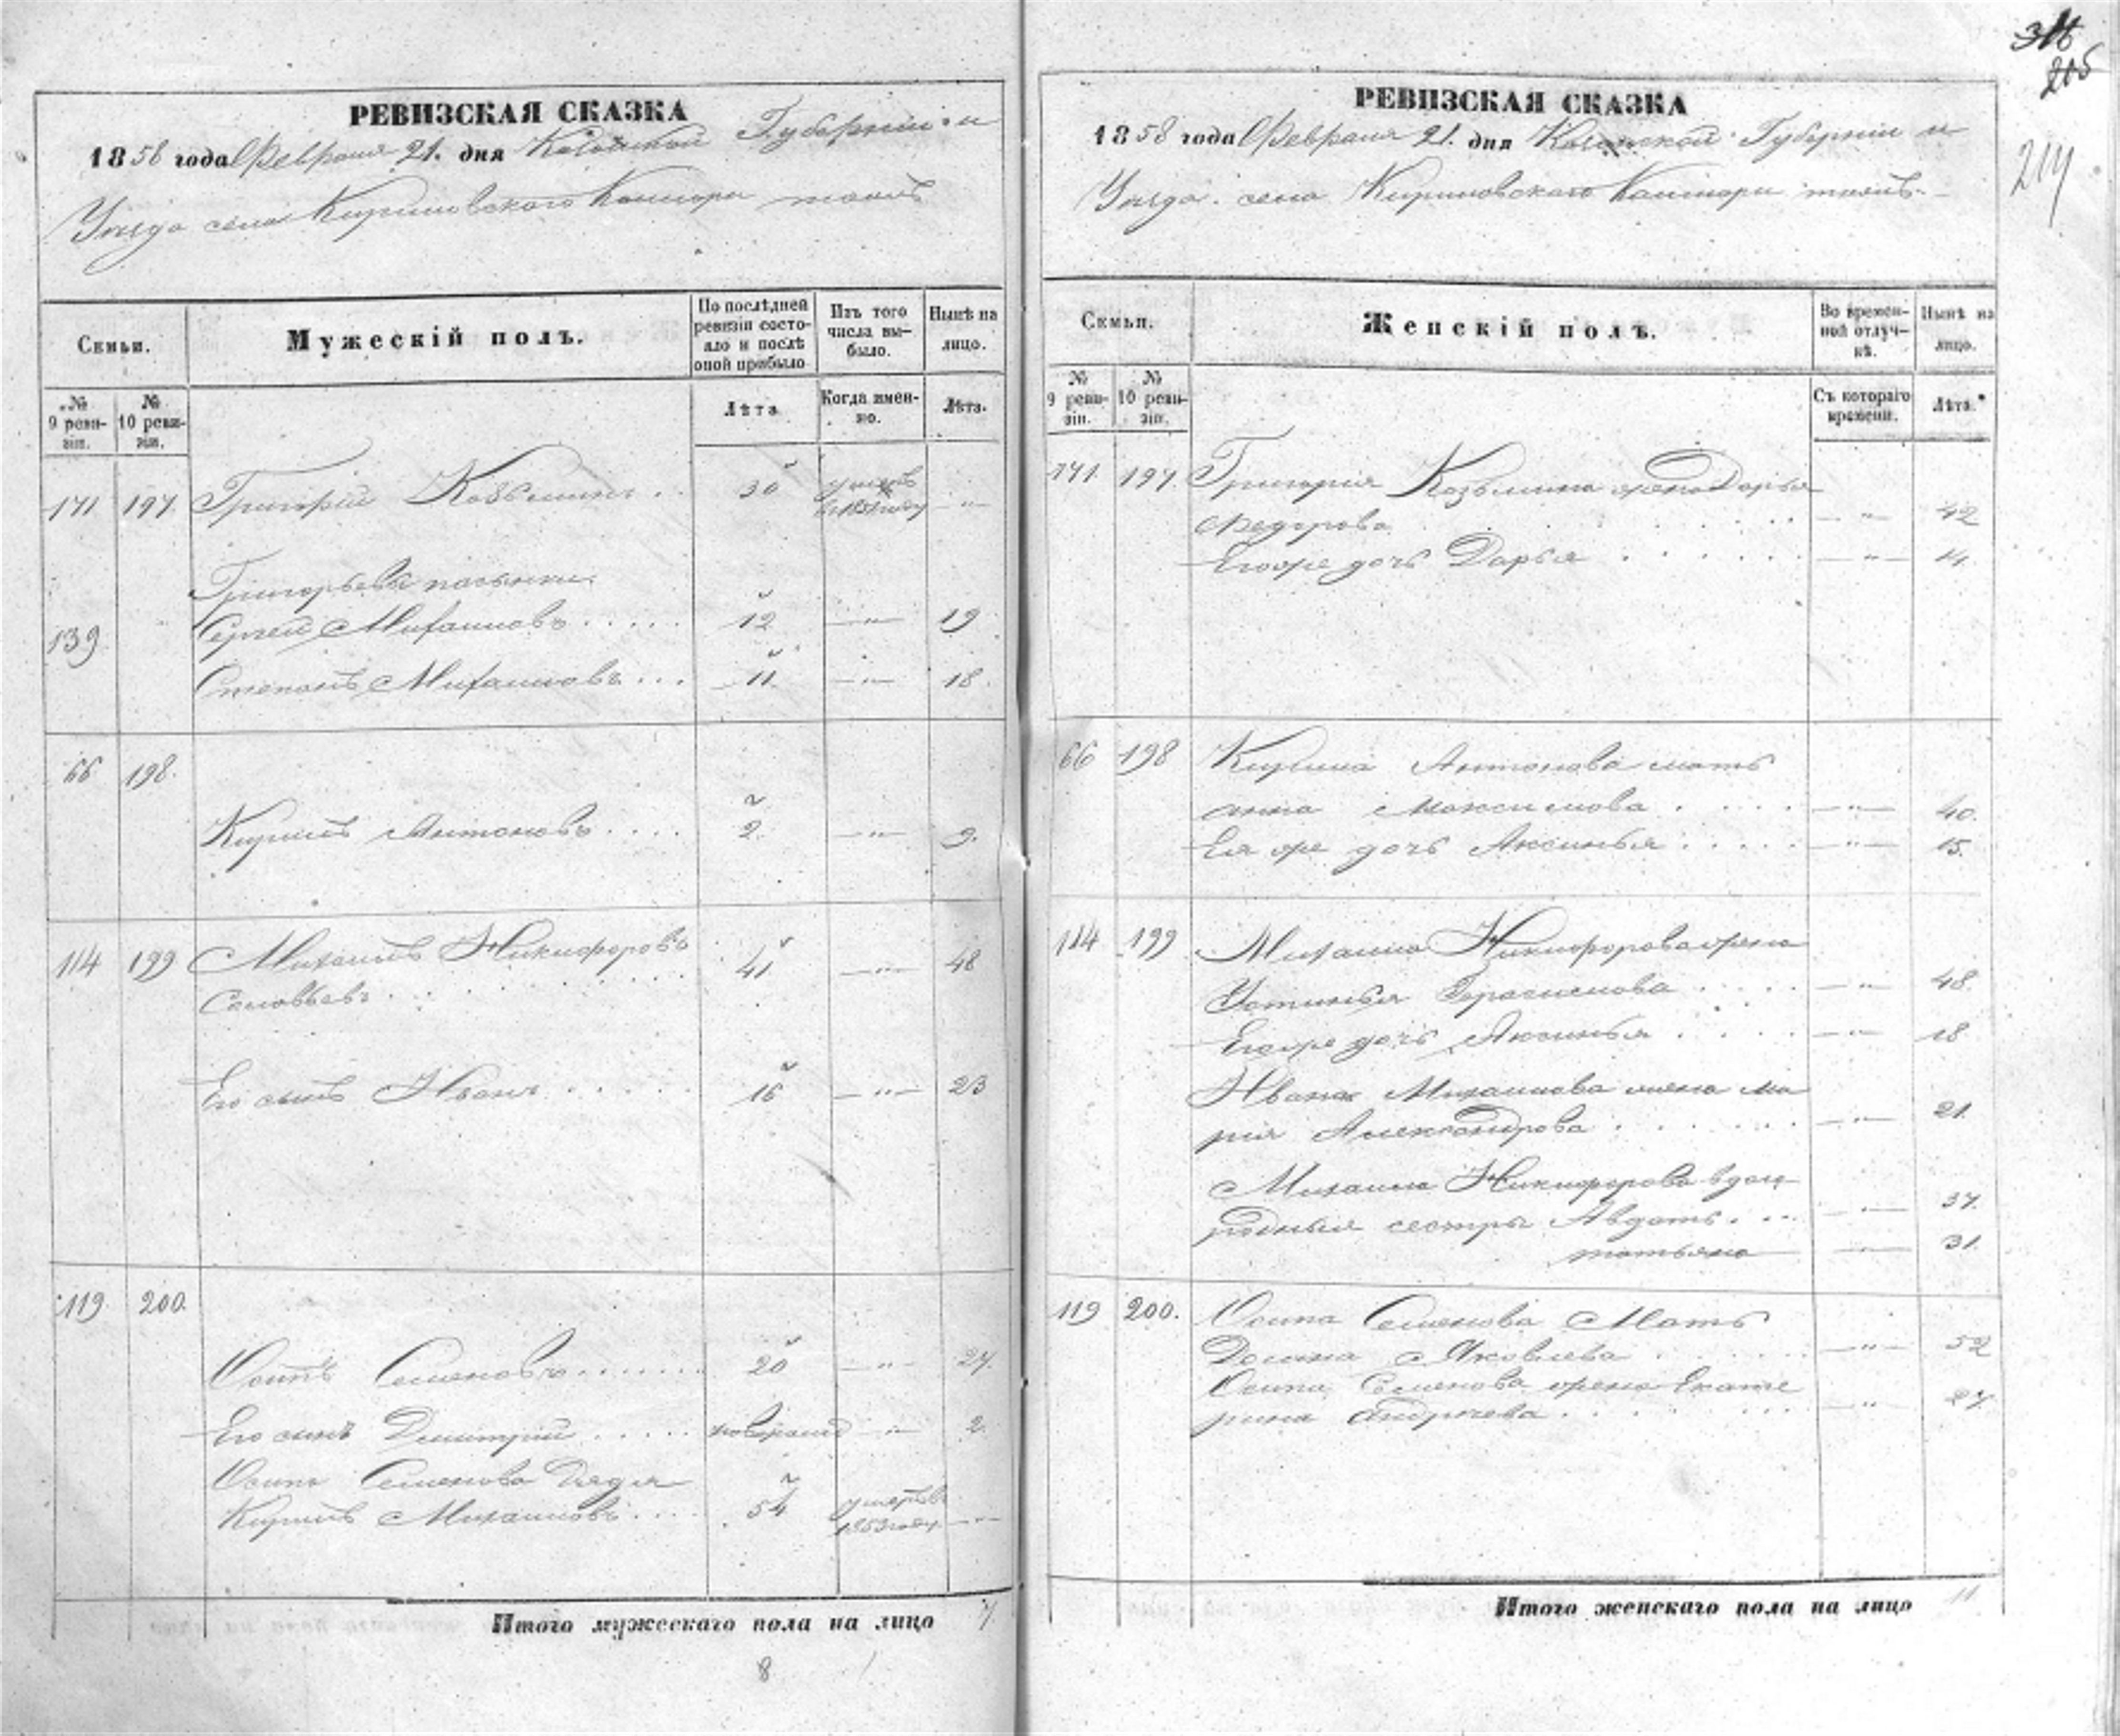 РЕВИЗСКАЯ СКАЗКА
1858 года Февраля 21. дня Губернии и
Уезда села Кириловского Конторы тожъ
Семьи.
Мужескій полъ.
По послѣдней ревизіи состояло и послѣ оной прибыло
Изъ того числа выбыло.
Нынѣ на лицо.
№ 9 ревизіи.
№ 10 ревизіи.
Лѣта
Когда именно.
Лѣта.
171 197. Григорій Козьминъ . . 30 умеръ въ 1851 году — " —
Григорьевы пасынки.
139 Сергей Михаиловъ . . . . . 12 — " — 19
Степанъ Михаиловъ . . . 11 — " — 18.
66 198.
Кирилъ Антоновъ . . . . 2 — " — 9.
114 199 Михаилъ Никифоровъ 41 — " — 48
Соловьевъ . . .
Его сынъ Иванъ . . . . . 16 — " — 23
119 200.
Осипъ Семеновъ . . . . . . . 20 — " — 27.
Его сынъ Дмитрій . . . . . новорожд — " — 2
Осипа Семенова Дядя
Кирилъ Михаиловъ . . . . 54 умеръ въ 1853 году — " —
Итого мужескаго пола на лицо 7.
8
205
217
РЕВИЗСКАЯ СКАЗКА
1858 года Февраля 21. дня Губерніи и
Уезда. села Кириловскаго Конторы тожъ.
Семьи.
Женскій полъ.
Во временной отлучкѣ.
Нынѣ на лицо.
№ 9 ревизіи.
№ 10 ревизіи.
Съ котораго времени.
Лѣта.
171. 197. Григорія Козьмина жена Дарья
Федорова — " — 42
Егоже дочь Дарья . . . . . — " — 14.
66 198 Кирила Антонова мать
анна Максимова . . . . — " — 40.
Ея же дочь Аксинья . . . . . — " — 15.
114 199 Михаила Никифорова жена
Устинья Герасимова . . . . — " — 48.
Егоже дочь Аксинья . . . . — " — 18
Ивана Михаилова жена Ма
рия Александрова . . . . . . — " — 21.
Михаила Никифорова двою
родныя сестры Авдотья . . . — " — 37.
татьяна — " — 31.
119 200. Осипа Семенова Мать
Домна Яковлева . . . . — " — 52
Осипа Семенова жена Екате
рина Андреева . . . . . . . — " — 27.
Итого женскаго пола на лицо 11